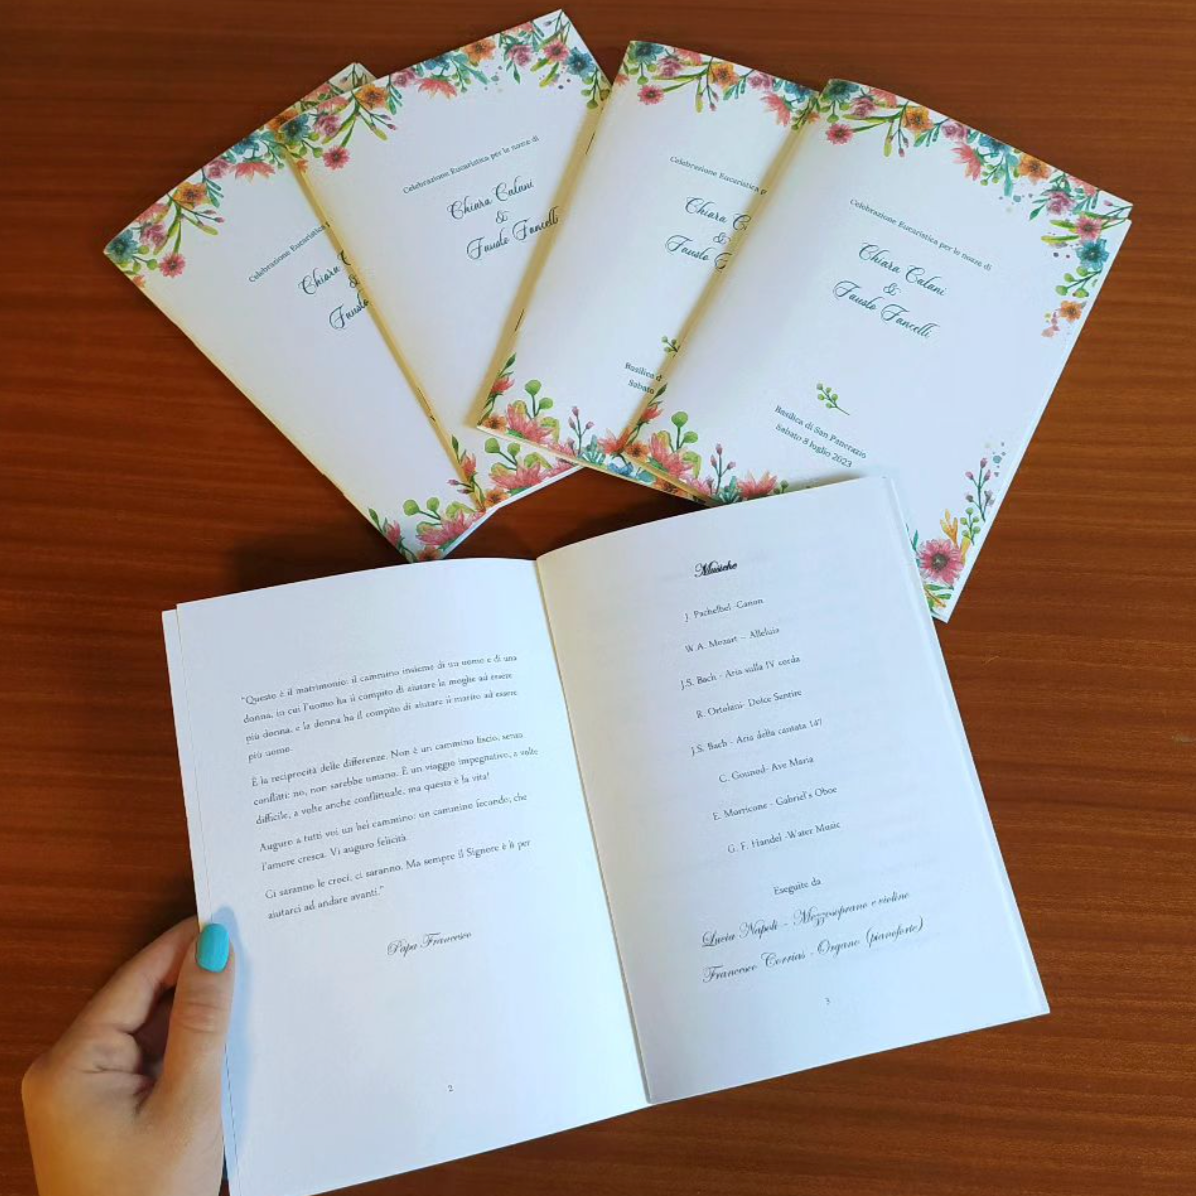 Celebrazione Eucaristica
Chiara C
&
Fausto
Celebrazione Eucaristica per le nozze di
Chiara Calani
&
Fausto Fancelli
Celebrazione Eucaristica p
Chiara C
&
Fausto
Basilica d
Sabato
Celebrazione Eucaristica per le nozze di
Chiara Calani
&
Fausto Fancelli
Basilica di San Pancrazio
Sabato 8 luglio 2023
"Questo è il matrimonio: il cammino insieme di un uomo e di una
donna, in cui l'uomo ha il compito di aiutare la moglie ad essere
più donna, e la donna ha il compito di aiutare il marito ad essere
più uomo.
È la reciprocità delle differenze. Non è un cammino liscio, senza
conflitti: no, non sarebbe umano. È un viaggio impegnativo, a volte
difficile, a volte anche conflittuale, ma questa è la vita!
Auguro a tutti voi un bel cammino: un cammino fecondo; che
l'amore cresca. Vi auguro felicità.
Ci saranno le croci, ci saranno. Ma sempre il Signore è lì per
aiutarci ad andare avanti."
Papa Francesco
2
Musiche
J. Pachelbel -Canon
W.A. Mozart – Alleluia
J.S. Bach - Aria sulla IV corda
R. Ortolani- Dolce Sentire
J.S. Bach - Aria della cantata 147
C. Gounod- Ave Maria
E. Morricone - Gabriel's Oboe
G. F. Handel -Water Music
Eseguite da
Lucia Napoli - Mezzosoprano e violino
Francesco Corrias - Organo (pianoforte)
3